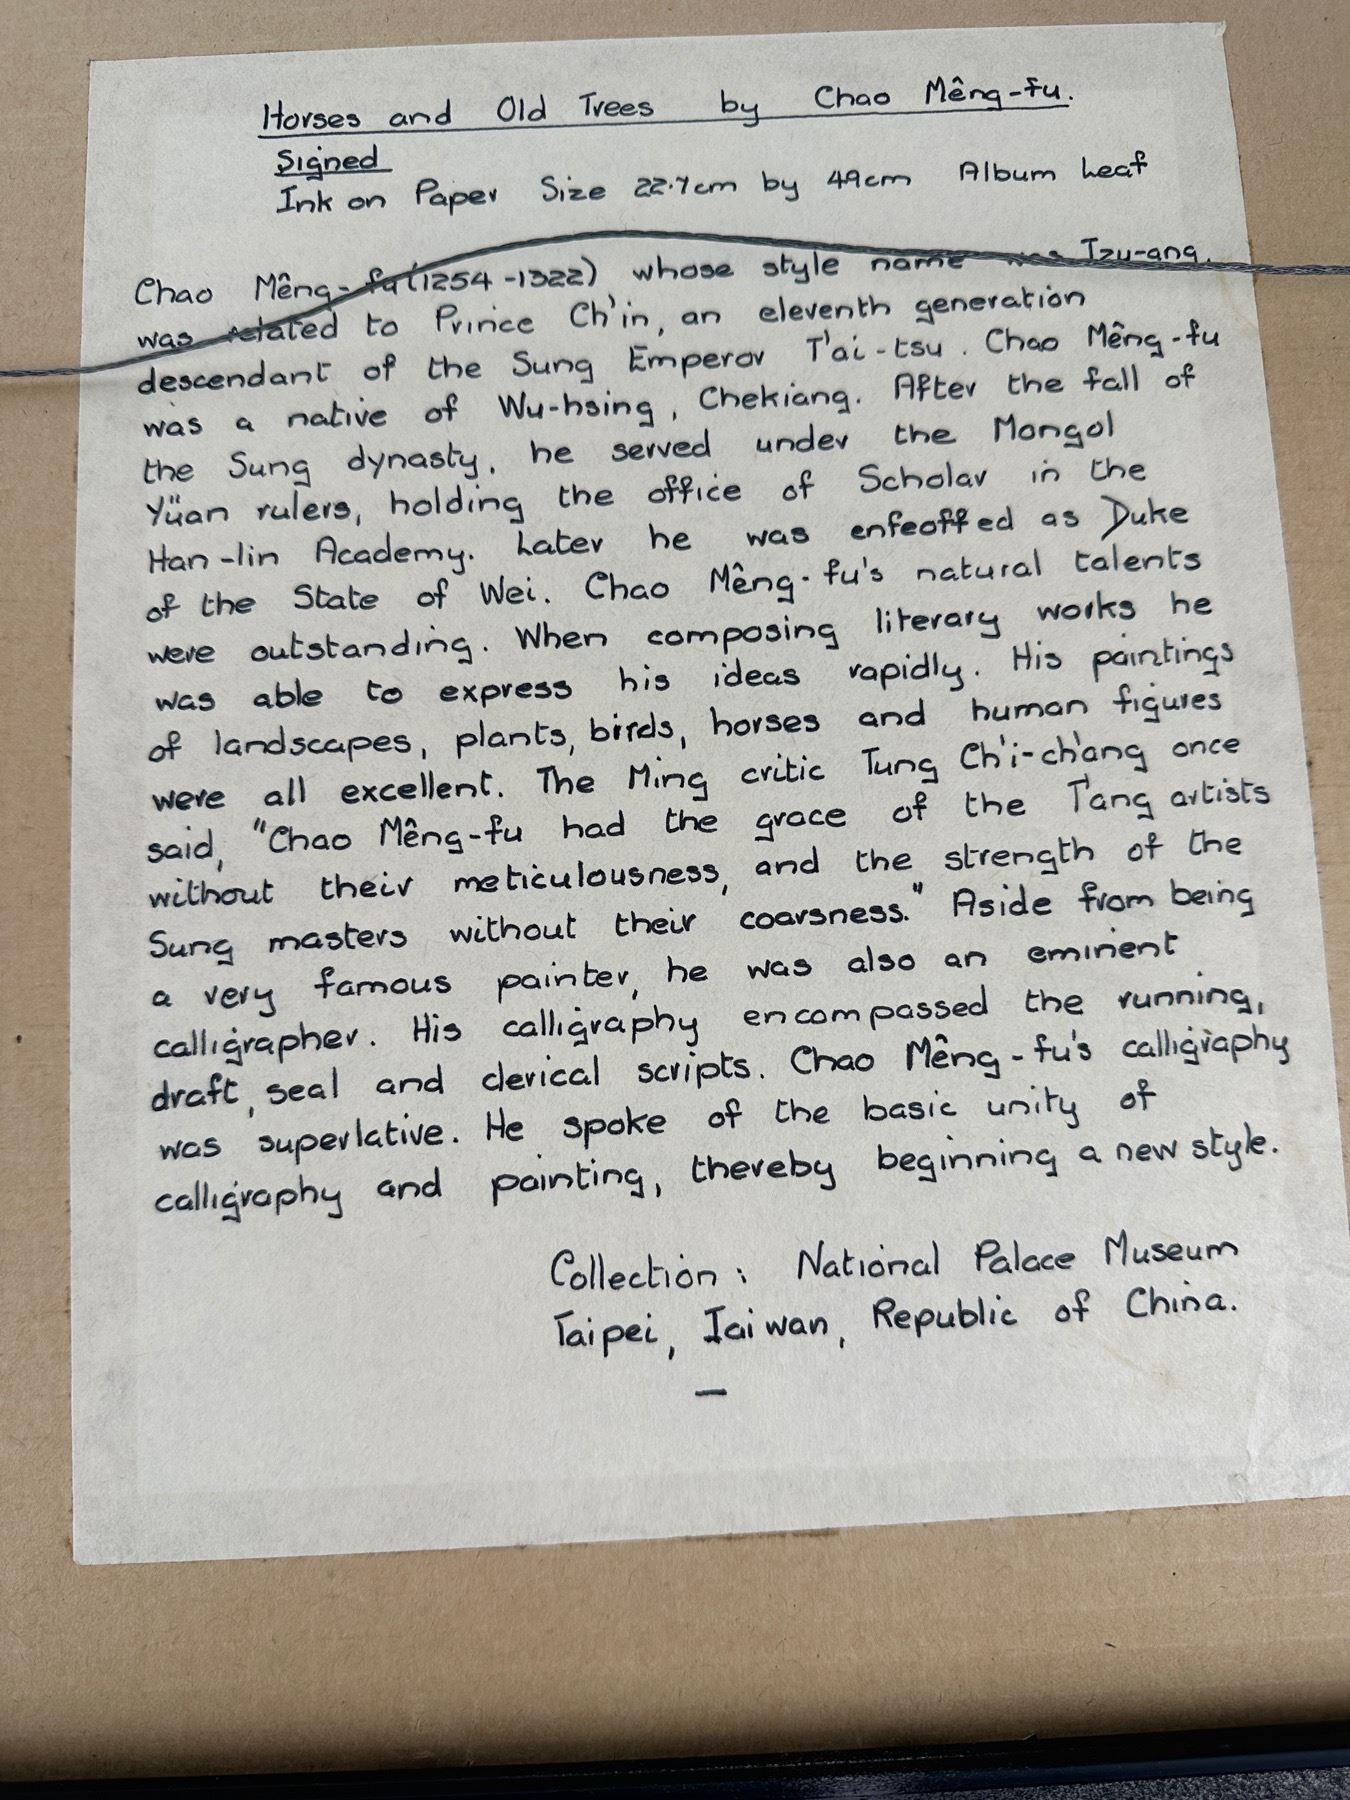 Horses and Old Trees by Chao Mêng-fu.
Signed
Ink on Paper Size 22.7cm by 49cm Album Leaf
Chao Mêng-fu (1254-1322) whose style name was Tzu-ang,
was related to Prince Ch'in, an eleventh generation
descendant of the Sung Emperor T'ai-tsu. Chao Mêng-fu
was a native of Wu-hsing, Chekiang. After the fall of
the Sung dynasty, he served under the Mongol
Yüan rulers, holding the office of Scholar in the
Han-lin Academy. Later he was enfeoffed as Duke
of the State of Wei. Chao Mêng-fu's natural talents
were outstanding. When composing literary works he
was able to express his ideas rapidly. His paintings
of landscapes, plants, birds, horses and human figures
were all excellent. The Ming critic Tung Ch'i-ch'ang once
said, "Chao Mêng-fu had the grace of the T'ang artists
without their meticulousness, and the strength of the
Sung masters without their coarsness." Aside from being
a very famous painter, he was also an eminent
calligrapher. His calligraphy encompassed the running,
draft, seal and clerical scripts. Chao Mêng-fu's calligraphy
was superlative. He spoke of the basic unity of
calligraphy and painting, thereby beginning a new style.
Collection: National Palace Museum
Taipei, Taiwan, Republic of China.